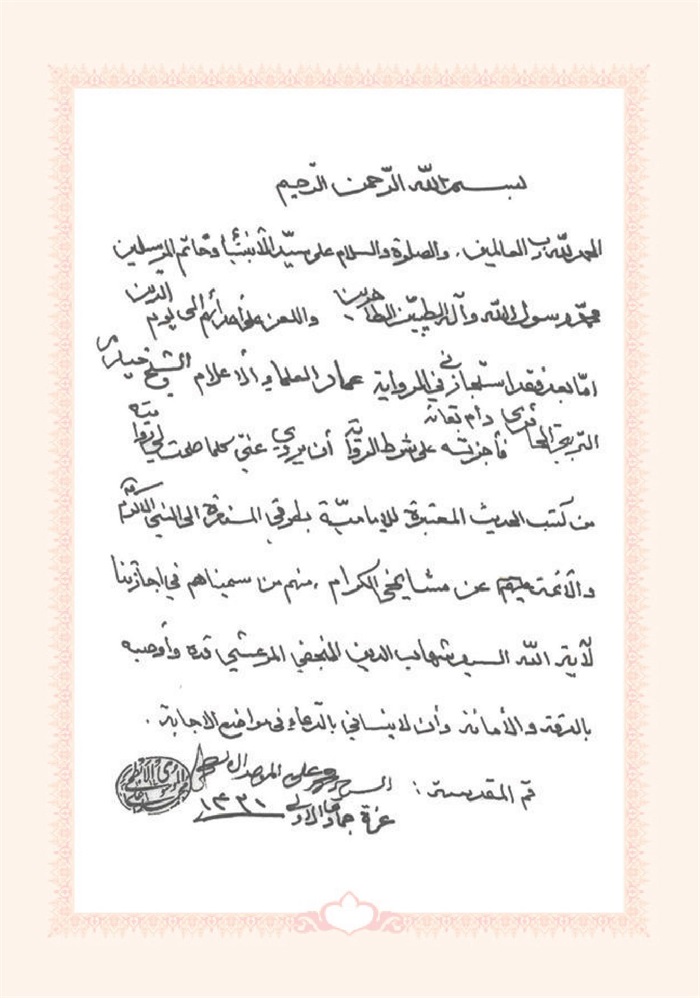 بسم الله الرّحمن الرّحيم
الحمد لله ربّ العالمين، والصلوة والسلام على سيّد الأنبياء وخاتم المرسلين
محمّد رسول الله وآله الطيبين الطاهرين، واللعن على أعدائهم إلى يوم الدّين
امّا بعد فقد استجازني في الرواية عماد العلماء الأعلام الشيخ حيدر
التربتي الحائري دام تقاته فأجزته على شرط الرواية أن يروي عنّي كلما صحت لي روايته
من كتب الحديث المعتبرة للإماميّة بطرقي إلى النبي الاكرم
والأئمة عليهم عن مشايخي الكرام، منهم من سميناهم في اجازتنا
لآية الله السيد شهاب الدين النجفي المرعشي قده وأوصيه
بالدقة والأمانة وأن لا ينساني بالدّعاء في مواضع الاجابة.
قم المقدسة: السيد محمد علي الموحد
غرة جمادى الاولى ١٤٣١